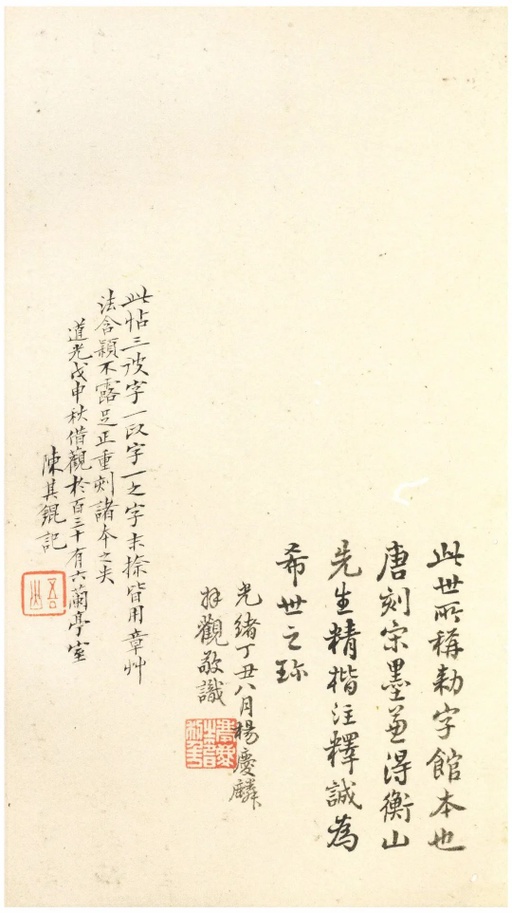 此世所稱勅字館本也
唐刻宋墨兼得衡山
先生精楷注釋誠為
希世之珎
光緒丁丑八月楊慶麟
拜觀敬識
此帖三波字一以字一之字末捺皆用章艸
法含穎不露足正重刻諸本之失
道光戊申秋借觀於百三十有六蘭亭室
陳其錕記